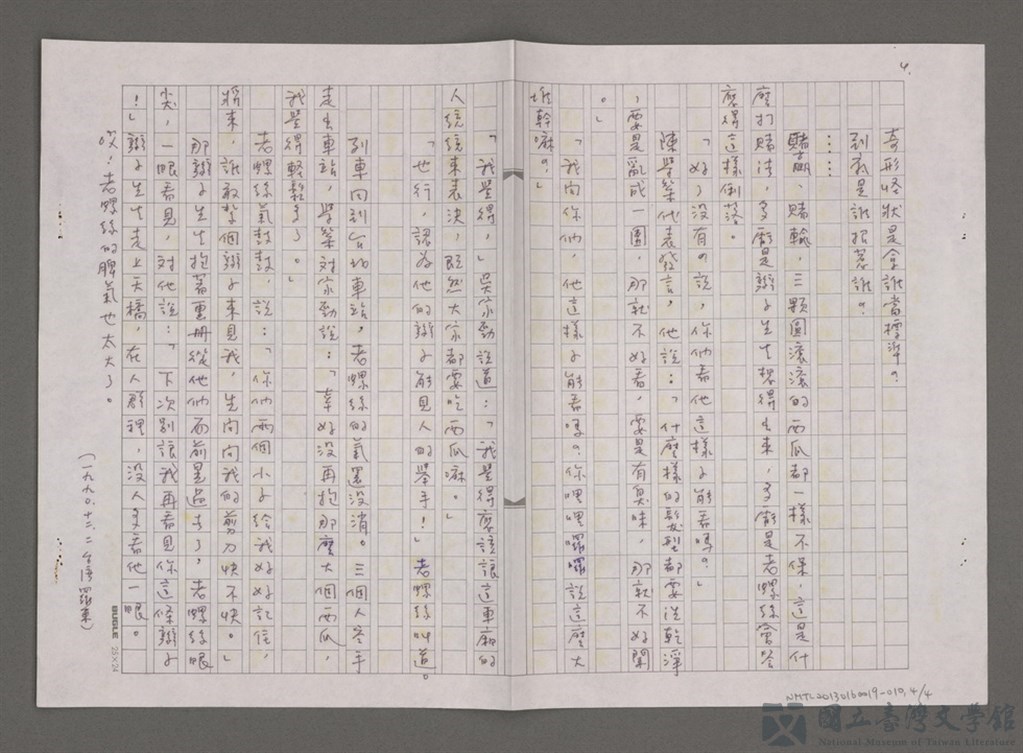 4.
奇形怪狀是拿誰當標準？
到底是誰招惹誰？
……
賭贏、賭輸，三顆圓滾滾的西瓜都一樣不保，這是什
麼打賭法，多虧是辮子生生想得出來，多虧是老螺絲會答
應得這樣俐落。
「好了沒有？說，你們看他這樣子能看嗎？」
陳學榮代表發言，他說：「什麼樣的髮型都要洗乾淨
，要是亂成一團，那就不好看，要是有臭味，那就不好聞
。」
「我問你們，他這樣子能看嗎？你哩哩囉囉說這麼大
堆幹嘛？」
「我覺得，」吳家勁說道：「我覺得應該讓這車廂的
人統統來表決，既然大家都要吃西瓜嘛。」
「也行，認為他的辮子能見人的舉手！」老螺絲叫道。
列車回到台北車站，老螺絲的氣還沒消。三個人空手
走出車站，學榮對家勁說：「幸好沒再抱那麼大個西瓜，
我覺得輕鬆多了。」
老螺絲氣鼓鼓，說：「你們兩個小子給我好好記住，
將來，誰敢紮個辮子來見我，先問問我的剪刀快不快。」
那辮子生生抱著畫冊從他們面前晃過去了，老螺絲眼
尖，一眼看見，對他說：「下次別讓我再看見你這條辮子
！」辮子生生走上天橋，在人群裡，沒人多看他一眼。
哎！老螺絲的脾氣也太大了。
（一九九〇.十二.二台灣羅東）
BUGLE 25×24
NMTL20130160019-010, 4/4
國立臺灣文學館
National Museum of Taiwan Literature